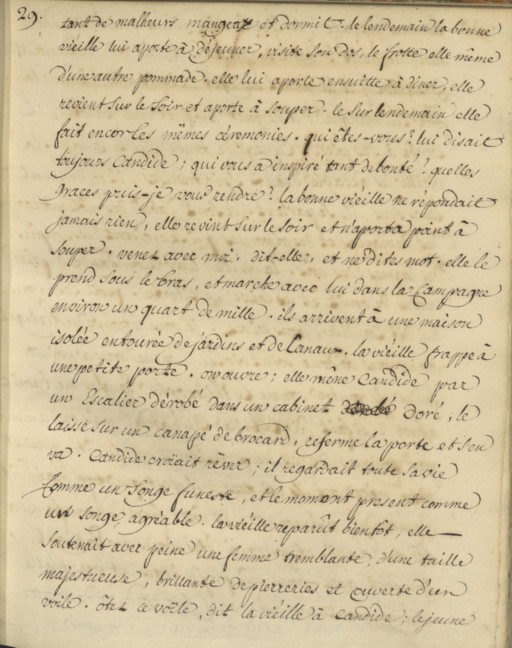 29.
tant de malheurs mangea et dormit. le lendemain la bonne
vieille lui aporte à déjeuner, visite son dos, le frotte elle même
d'une autre pommade. elle lui aporte ensuitte à diner, elle
revient sur le soir et aporte à souper. le surlendemain elle
fait encor les mêmes cérémonies. qui êtes-vous? lui disait
toujours Candide; qui vous a inspiré tant de bonté? quelles
graces puis-je vous rendre? la bonne vieille ne répondait
jamais rien, elle revint sur le soir et n'aporta point à
souper. venez avec moi. dit-elle, et ne dites mot. elle le
prend sous le bras, et marche avec lui dans la Campagne
environ un quart de mille. ils arrivent à une maison
isolée entourée de jardins et de Canaux. la vieille frappe à
une petite porte. on ouvre; elle mêne Candide par
un Escalier dérobé dans un cabinet doré, le
laisse sur un canapé de brocard, referme la porte et s'en
va. Candide croïait rêver; il regardait toute sa vie
comme un songe funeste, et le moment present comme
un songe agréable. la vieille reparût bientôt, elle
soutenait avec peine une femme tremblante, d'une taille
majestueuse, brillante de pierreries et couverte d'un
voile. ôtez ce voile, dit la vieille à Candide; le jeune